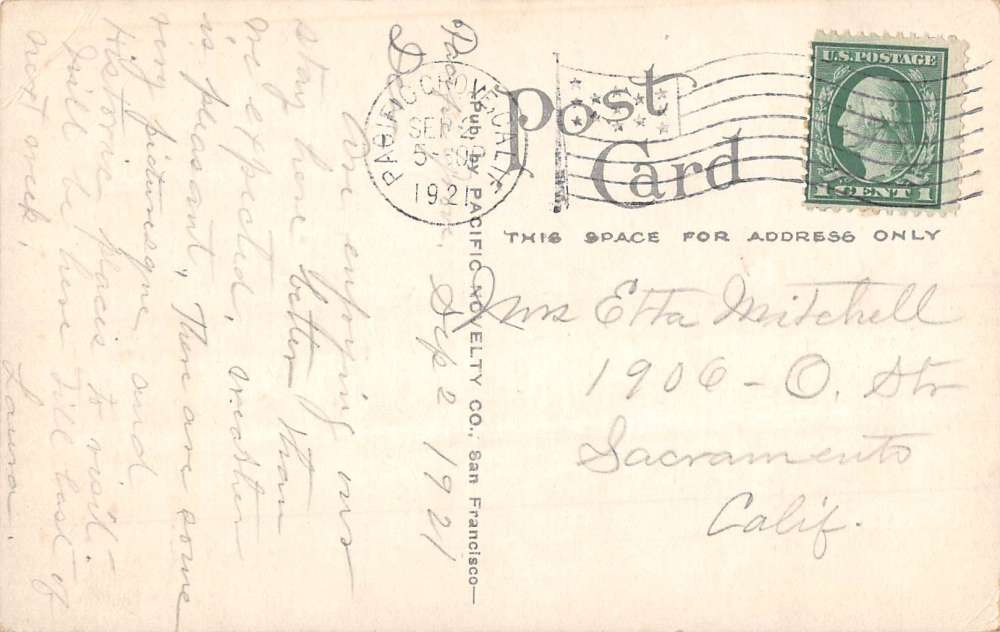 Pacific Grove, Sep 2 1921
Dear
Am enjoying our
stay here better than
we expected, weather
is pleasant. There are some
very picturesque and
Historic places to visit.
Will be here till last of
next week.
Laura.
Pub. by PACIFIC NOVELTY CO., San Francisco—
PACIFIC GROVE CALIF.
SEP 2
5-30P
1921
Post
Card
U.S. POSTAGE
1 CENT 1
THIS SPACE FOR ADDRESS ONLY
Mrs Etta Mitchell
1906 - O. Str
Sacramento
Calif.